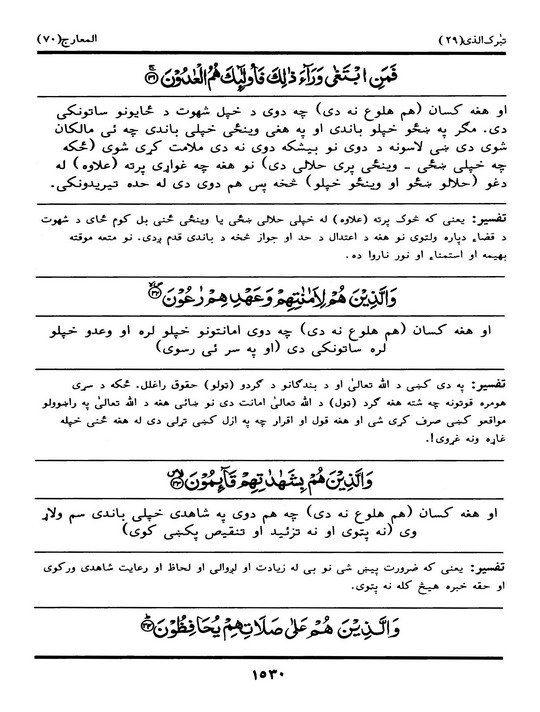 تبٰرک الذی (۲۹) المعارج (۷۰)
فَمَنِ ابْتَغٰى وَرَآءَ ذٰلِكَ فَأُولٰٓئِكَ هُمُ الْعٰدُوْنَ ۳۱
او هغه کسان (هم هلوع نه دی) چه دوی د خپل شهوت د ځایونو ساتونکی
دی. مګر په ښځو خپلو باندی او په هغی وینځی خپلی باندی چه ئی مالکان
شوی دی ښی لاسونه د دوی نو بیشکه دوی نه دی ملامت کړی شوی (ځکه
چه خپلی ښځی ـ وینځی پری حلالی دی) نو هغه چه غواړی پرته (علاوه) له
دغو (حلالو ښځو او وینځو خپلو) څخه پس هم دوی دی له حده تیریدونکی.
تفسیر: یعنی که څوک پرته (علاوه) له خپلی حلالی ښځی یا وینځی ځنی بل کوم ځای د شهوت
د قضاء دپاره ولتوی نو هغه د اعتدال د حد او جواز څخه د باندی قدم ږدی. نو متعه موقته
بهیمه او استمناء او نور ناروا ده.
وَالَّذِيْنَ هُمْ لِاَمٰنٰتِهِمْ وَعَهْدِهِمْ رٰعُوْنَ ۳۲
او هغه کسان (هم هلوع نه دی) چه دوی امانتونو خپلو لره او وعدو خپلو
لره ساتونکی دی (او په سر ئی رسوی)
تفسیر: په دی کښی د الله تعالیٰ او د بندګانو د ګردو (ټولو) حقوق راغلل. ځکه د سړی
هومره قوتونه چه شته هغه ګرد (ټول) د الله تعالیٰ امانت دی نو ښائی هغه د الله تعالیٰ په راښوولو
مواقعو کښی صرف کړی شی او هغه قول او اقرار چه په ازل کښی تړلی دی له هغه ځنی خپله
غاړه ونه غړوی!.
وَالَّذِيْنَ هُمْ بِشَهٰدٰتِهِمْ قَآئِمُوْنَ ۳۳
او هغه کسان (هم هلوع نه دی) چه هم دوی په شاهدی خپلی باندی سم ولاړ
وی (نه پتوی او نه تزئید او تنقیص پکښی کوی)
تفسیر: یعنی که ضرورت پیښ شی نو بی له زیادت او لږوالی او لحاظ او رعایت شاهدی ورکوی
او حقه خبره هیڅ کله نه پتوی.
وَالَّذِيْنَ هُمْ عَلٰى صَلَاتِهِمْ يُحَافِظُوْنَ ۳۴
۱۵۳۰